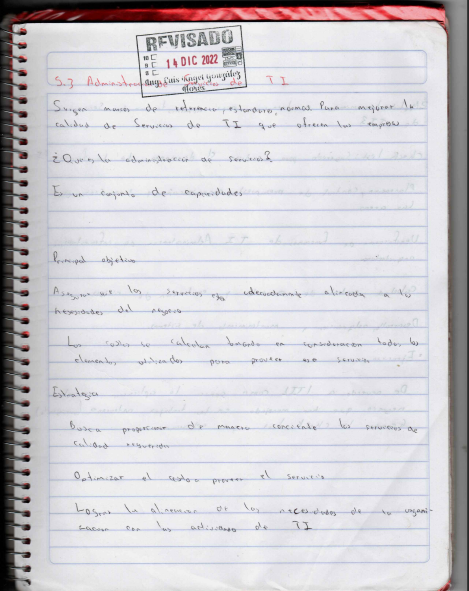 REVISADO
14 DIC 2022
Luis Angel González
Flores
5.3 Administra de TI
Surgen marcos de referencia, estandares, normas para mejorar la
calidad de Servicios de TI que ofrecen las empresas
¿Que es la administracion de servicios?
Es un conjunto de capacidades
Principal objetivo
Asegurar que los servicios adecuadamente alineada a las
necesidades del negocio
Los costos se calculan tomando en consideración todos los
elementos utilizados para proveer ese servicio
Estrategia
Busca proporcionar de manera consistente los servicios de
calidad requerida
Optimizar el costo a proveer el servicio
Lograr la alineación de las necesidades de organi-
zacion con las actividades de TI